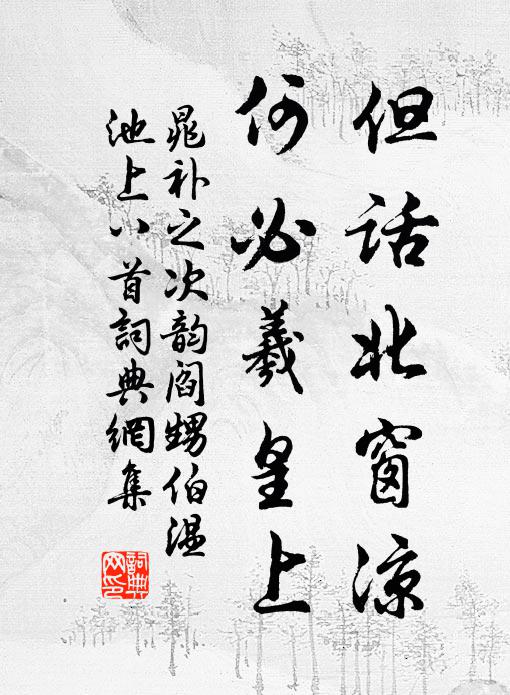 但话北窗凉
何必羲皇上
晁补之次韵阎甥伯温
池上八首詞典網集
詞典网印